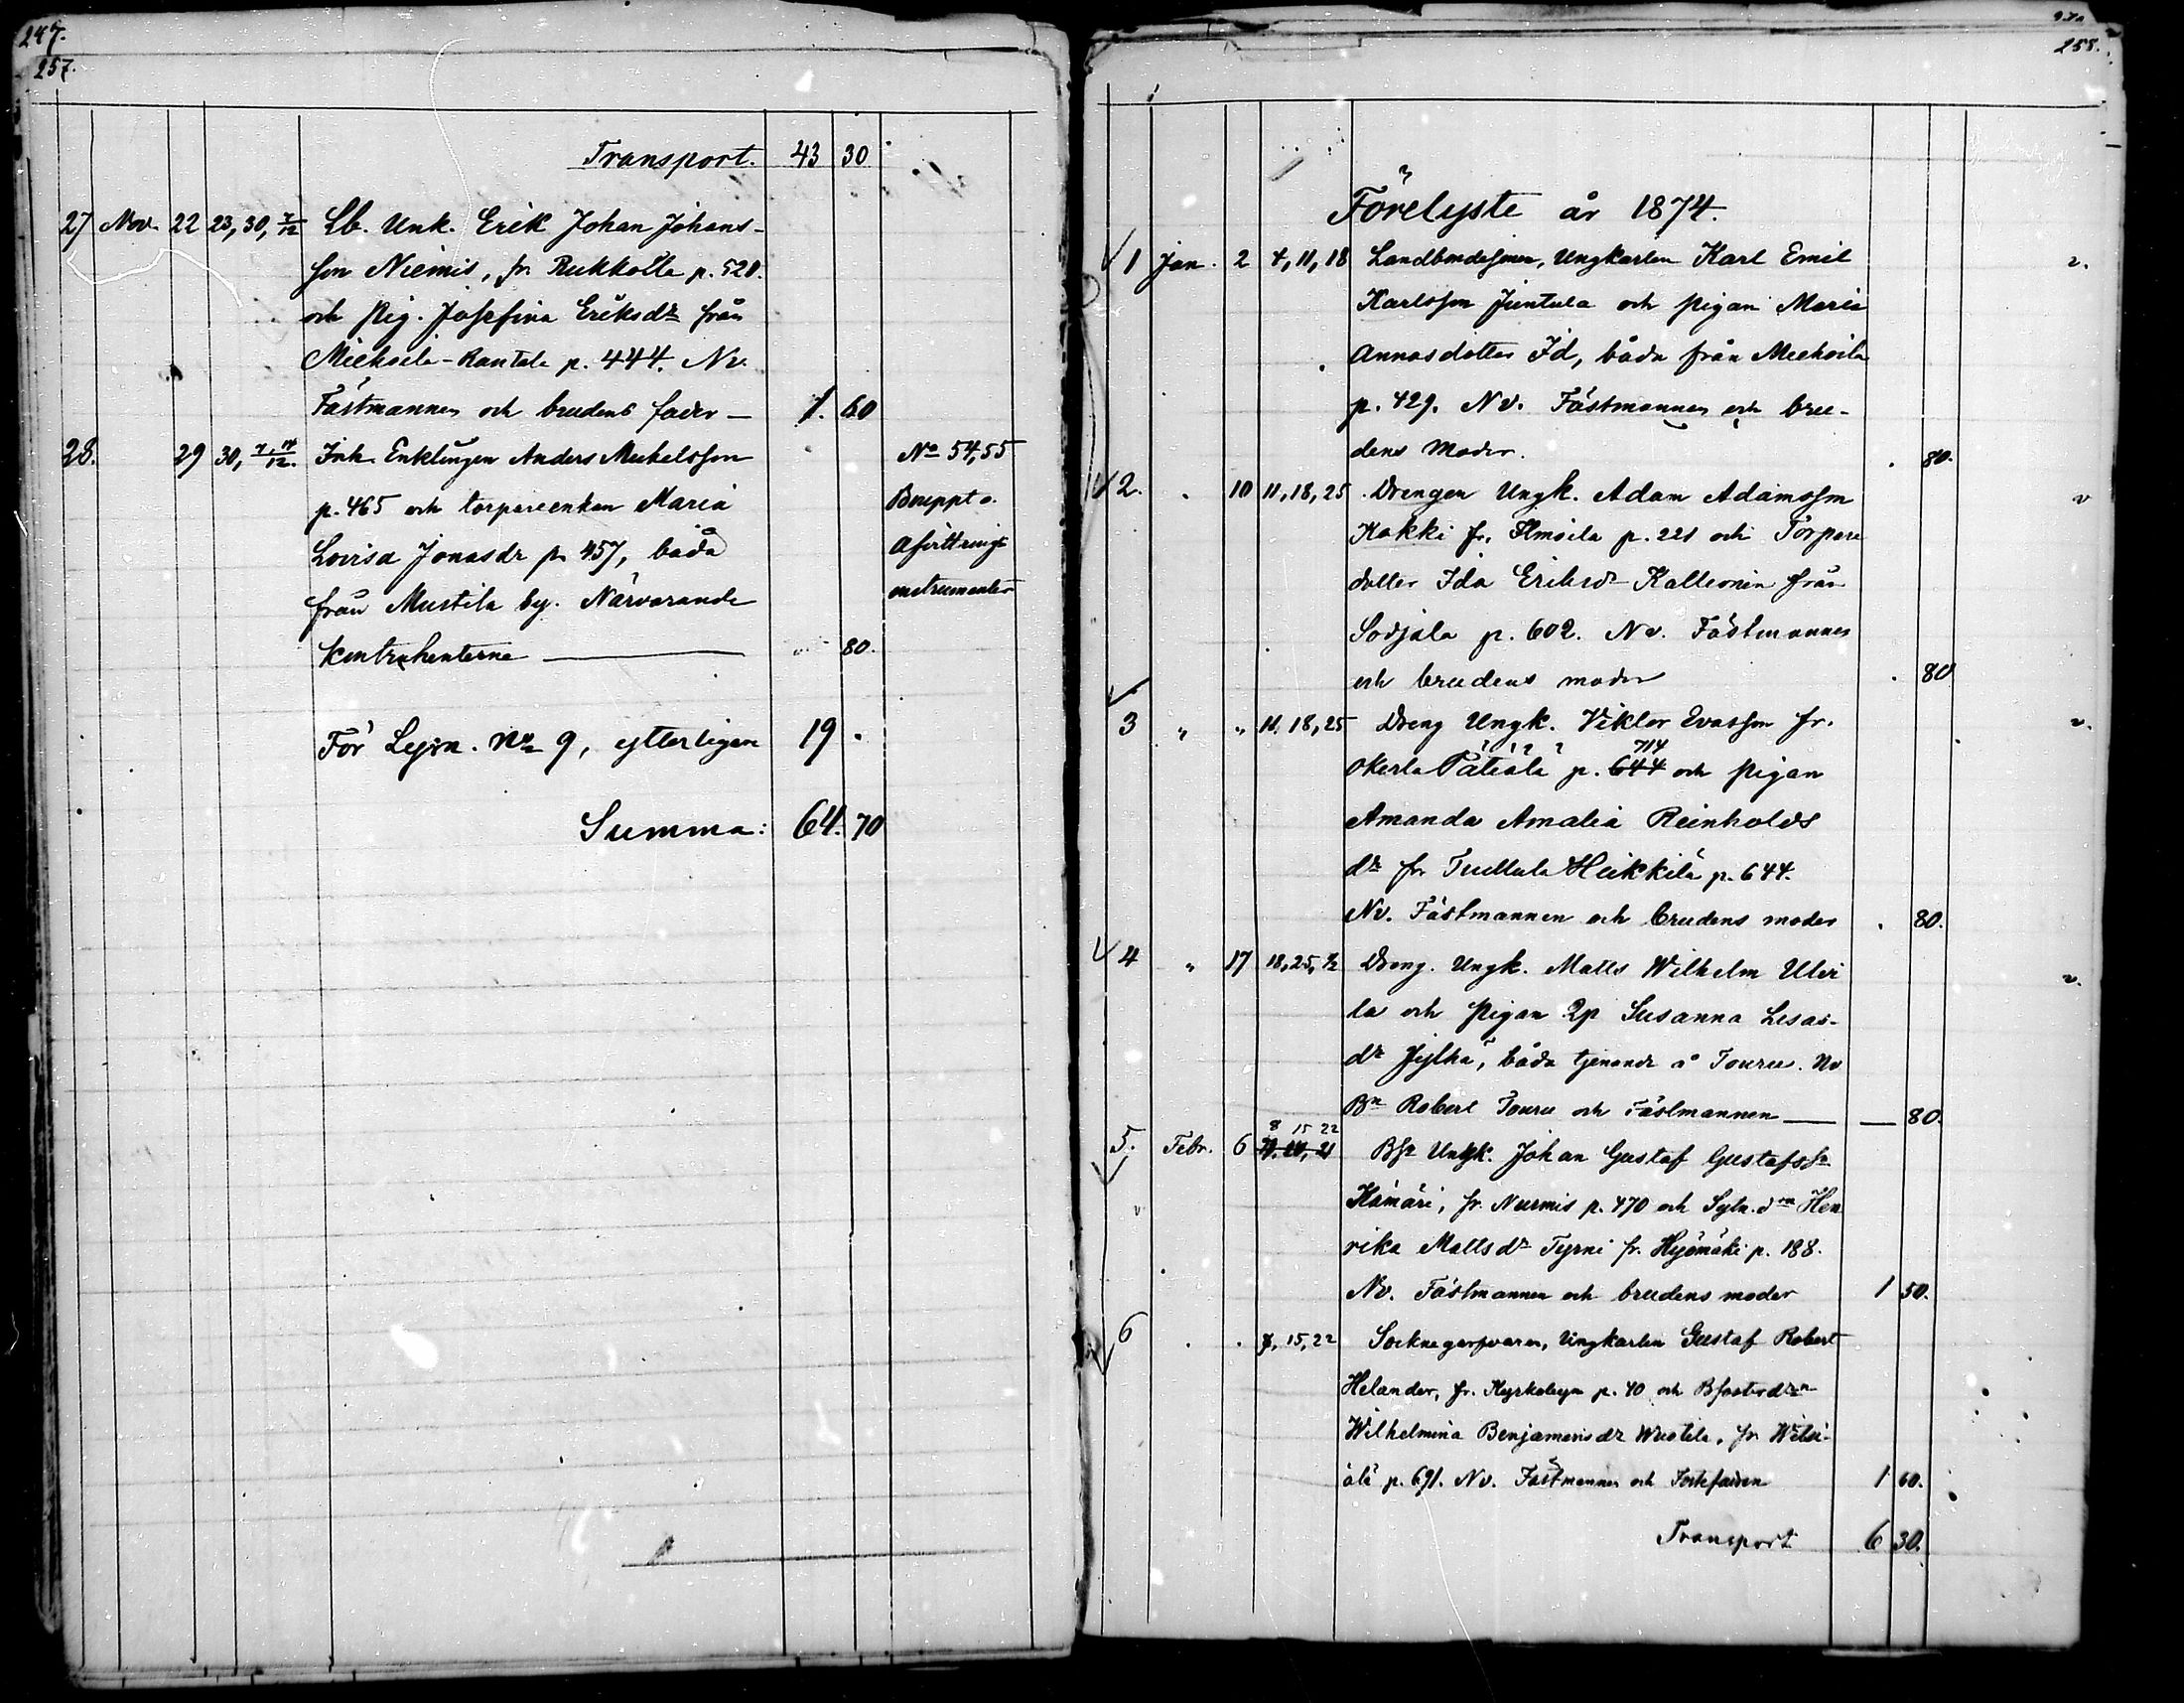 247.
257.
Transport. 43 30
27 Nov. 22 23, 30, 7/12 Lb. Unk. Erik Johan Johans-
son Niemis, fr. Rukkoila p. 520.
och Pig. Josefina Eriksdr från
Miehoila-Rantala p. 444. Nv.
Fästmannen och brudens fader — 1. 60
28. 29 30, 7.14/12. Inh. Enklingen Anders Mickelsson No 54,55
p. 465 och torpareenkan Maria Bouppt o.
Lovisa Jonasdr p. 457, båda Afvittrings
från Mustila by. Närvarande instrumenter
kontrahenterna — 80.
För Lysn. No 9, ytterligare 19 .
Summa: 64. 70
258.
Förelyste år 1874.
1 Jan. 2 4, 11, 18 Landbondesonen, Ungkarlen Karl Emil v.
Karlsson Juntula och pigan Maria
Annasdotter Id, båda från Miehoila
p. 429. Nv. Fästmannen och bru-
dens Moder. 80.
2. . 10 11, 18, 25 Drengen Ungk. Adam Adamsson v
Kokki fr. Ilmoila p. 221 och Torpare
dotter Ida Eriksdr Kallionin från
Sodjala p. 602. Nv. Fästmannen
och brudens moder . 80
3 " " 11, 18, 25 Dreng Ungk. Viktor Evasson fr. v.
714
Okerla Pätiälä p. 644 och pigan
Amanda Amalia Reinholds
dr fr. Tullula Heikkilä p. 644.
Nv. Fästmannen och brudens moder . 80.
4 " 17 18, 25, 1/2 Dreng. Ungk. Matts Wilhelm Uler v.
la och Pigan 2p Susanna Lisas-
dr Jylhä, båda tjenande å Touru. Nv
Bn Robert Touru och Fästmannen — — 80.
8 15 22
5. Febr. 6 Bsn Ungk. Johan Gustaf Gustafssn
Kämäri, fr. Nurmis p. 470 och Sytn. d:n Hen
rika Mattsdr Tyrni fr. Hyömäki p. 188.
Nv. Fästmannen och brudens moder 1 50.
6 . . 8, 15, 22 Socknegarfvaren, Ungkarlen Gustaf Robert
Helander, fr. Kyrkobyn p. 40 och Bfosterdrn
Wilhelmina Benjaminsdr Wustila, fr. Witsi-
älä p. 691. Nv. Fästmannen och Fosterfadren 1 60.
Transport 6 30.